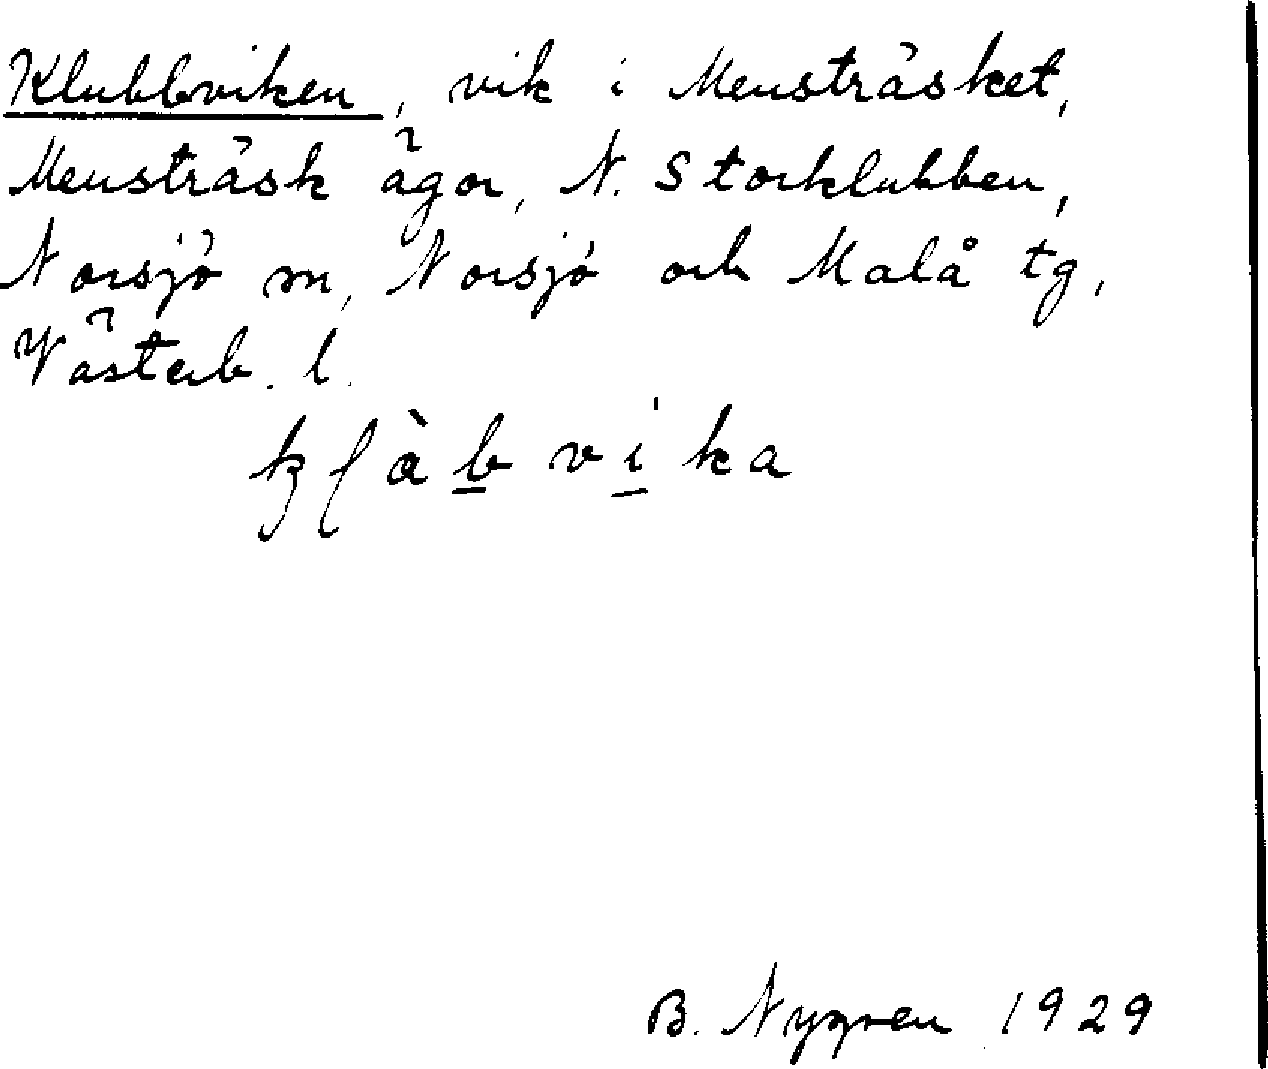 Klubbviken, vik i Mensträsket,
Mensträsk ägor, N. Storklubben,
Norsjö sn, Norsjö och Malå tg,
Västerb. l.
B. Nygren 1929